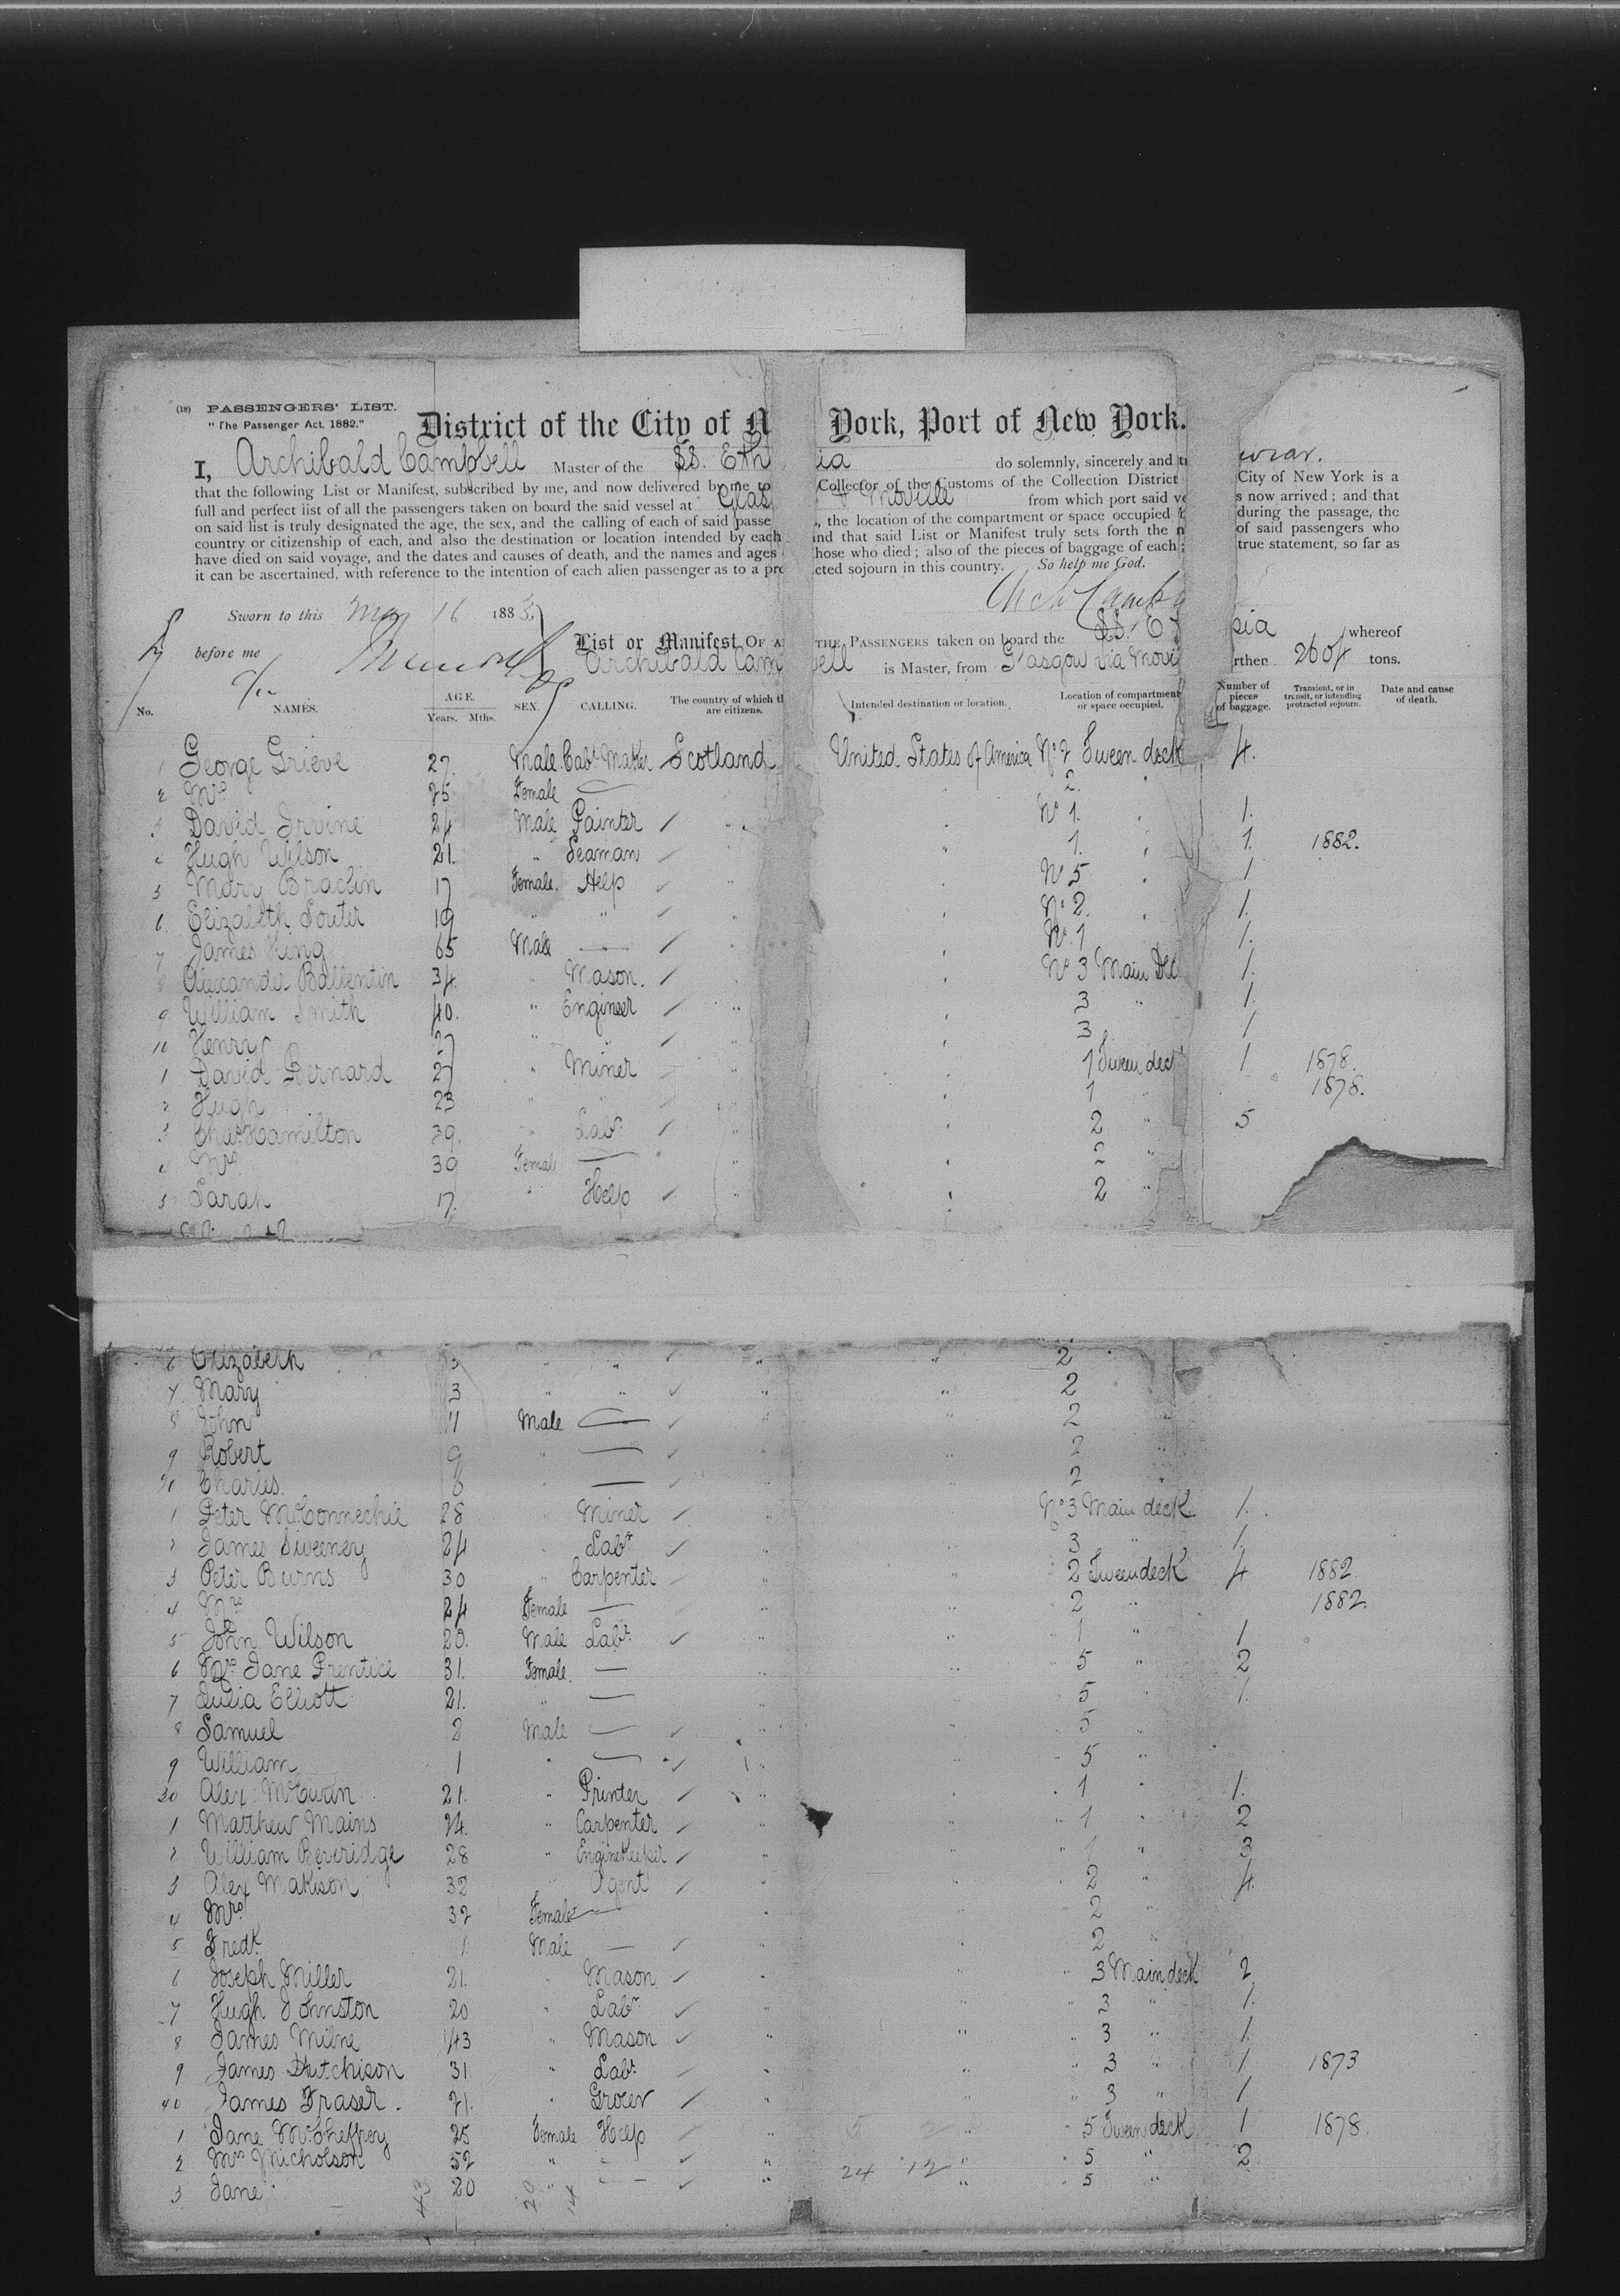 (18) PASSENGERS' LIST.
"The Passenger Act, 1882."
District of the City of N York, Port of New York.
I, Archibald Campbell Master of the SS. Eth ia do solemnly, sincerely and
that the following List or Manifest, subscribed by me, and now delivered by me Collector of the Customs of the Collection District City of New York is a
full and perfect list of all the passengers taken on board the said vessel at Glas & Moville from which port said ve s now arrived; and that
on said list is truly designated the age, the sex, and the calling of each of said passe , the location of the compartment or space occupied during the passage, the
country or citizenship of each, and also the destination or location intended by each and that said List or Manifest truly sets forth the n of said passengers who
have died on said voyage, and the dates and causes of death, and the names and ages hose who died; also of the pieces of baggage of each; true statement, so far as
it can be ascertained, with reference to the intention of each alien passenger as to a pro cted sojourn in this country. So help me God.
Arch Campb
Sworn to this May 16 1883
before me
List or Manifest OF A THE PASSENGERS taken on board the SS. E pia whereof
Archibald Cam bell is Master, from Glasgow via Movi rthen 2604 tons.
No. NAMES. AGE. Years. Mths. SEX. CALLING. The country of which th are citizens. Intended destination or location. Location of compartment or space occupied. Number of pieces of baggage. Transient, or in transit, or intending protracted sojourn. Date and cause of death.
1 George Grieve 27. Male Cabt Maker Scotland United States of America No 2 Tween deck 4.
2 Mrs 25 Female — " 2. "
3 David Irvine 24 Male Painter " No 1. " 1.
4 Hugh Wilson 21. " Seaman " 1. " 1. 1882.
5 Mary Braclin 17 Female. Help " No 5 " 1
6 Elizabeth Souter 19 " " " No 2. " 1.
7 James King 65 Male — " No 1 1.
8 Alexander Ballentin 34. " Mason. " No 3 Main Dec 1.
9 William Smith 40. " Engineer " 3 " 1.
10 Henry 27 " " 3 1
1 David Bernard 27 " Miner 1 Tween dec 1 1878.
2 Hugh 23 " " 1 " 1878.
3 Chas Hamilton 39. " Labr 2 " 5
4 Mrs 39 Female — " 2 "
5 Sarah 17. " Help " 2 "
6 Elizabeth " " " 2
7 Mary 3 " " " 2
8 John 11 Male — " 2 "
9 Robert 9 " — " 2 "
20 Charles. " — " 2
1 Peter McConnechie 28 Miner " No 3 Main deck 1.
2 James Sweeney 24 " Labr " 3 " 1.
3 Peter Burns 30 " Carpenter " 2 Tween deck 4 1882
4 Mrs 24 Female — " 2 " 1882.
5 John Wilson 20. Male Labr " 1 " 1
6 Mrs Jane Prentice 31. Female. — " 5 " 2
7 Julia Elliott 21. " — 5 " 1.
8 Samuel 2 Male — " 5 "
9 William 1 " — " 5 "
30 Alex McEwan 21. " Printer " 1 " 1.
1 Matthew Mains 24. " Carpenter " 1 " 2
2 William Beveridge 28 " Enginekeeper " 1 " 3
3 Alex Makison 32 " Agent " 2 " 4.
4 Mrs 32 Female — " 2 "
5 Fredk 1. Male — " 2 "
6 Joseph Miller 21. " Mason " 3 Main deck 2.
7 Hugh Johnston 20 " Labr " 3 " 1.
8 James Milne 43 " Mason " 3 " 1.
9 James Hutchison 31 " Labr " 3 " 1 1873
40 James Fraser. 21. " Grocer " 3 " 1
1 Jane McSheffery 25 Female Help " 5 Tween deck 1 1878.
2 Mrs Nicholson 52 " " 5 " 2.
3 Jane 20 " — " 5 "
24 12
43 29 14